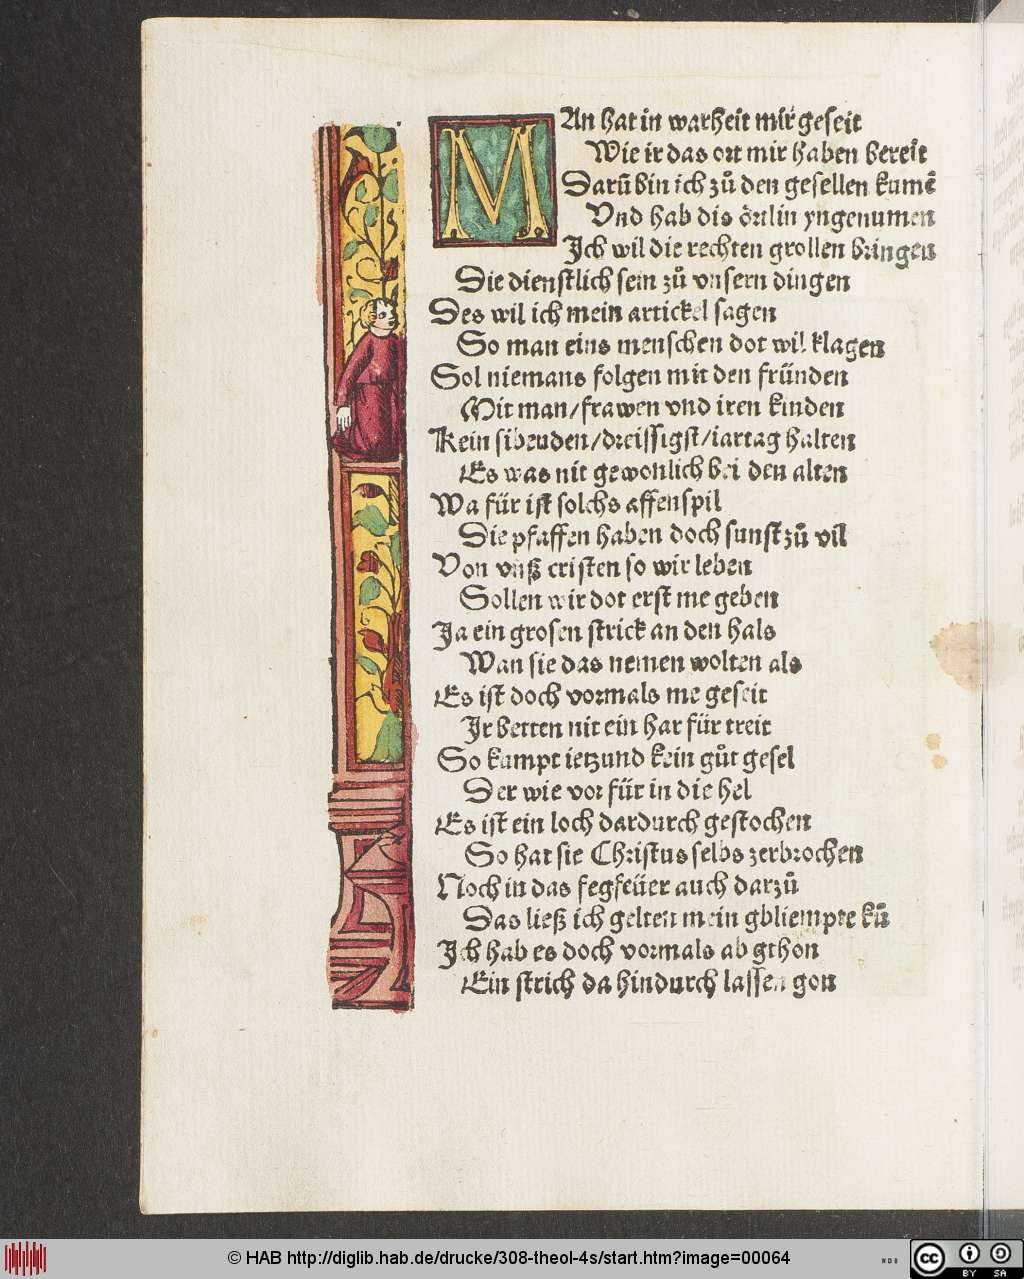 MAn hat in warheit mir geseit
Wie ir das ort mir haben bereit
Darū bin ich zů den gesellen kumē
Vnd hab dis örtlin yngenumen
Ich wil die rechten grollen bringen
Die dienstlich sein zů vnsern dingen
Des wil ich mein artickel sagen
So man eins menschen dot wil klagen
Sol niemans folgen mit den fründen
Mit man/frawen vnd iren kinden
Kein sibenden/dreissigst/iartag halten
Es was nit gewonlich bei den alten
Wa für ist solchs affenspil
Die pfaffen haben doch sunst zů vil
Von vnß cristen so wir leben
Sollen wir dot erst me geben
Ja ein grosen strick an den hals
Wan sie das nemen wolten als
Es ist doch vormals me geseit
Ir betten nit ein har für treit
So kumpt ietzund kein gůt gesel
Der wie vor für in die hel
Es ist ein loch dardurch gestochen
So hat sie Christus selbs zerbrochen
Noch in das fegfeüer auch darzů
Das ließ ich gelten mein gbliempte ků
Ich hab es doch vormals ab gthon
Ein strich da hindurch lassen gon
© HAB http://diglib.hab.de/drucke/308-theol-4s/start.htm?image=00064
WDB
cc BY SA